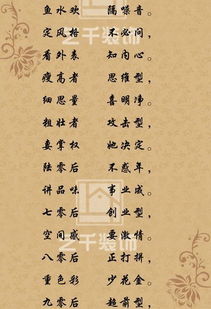 鱼水欢 隔噪音。
定风格 不必问，
看外表 知内心。
瘦高者 思维型，
细思量 喜明净。
粗壮者 攻击型，
要掌权 她决定。
陆零后 不惑年，
讲品味 事业成。
七零后 创业型，
空间感 要激情。
八零后 正打拼，
重色彩 少花金。
九零后 超前型，
艺千装饰
艺千装饰